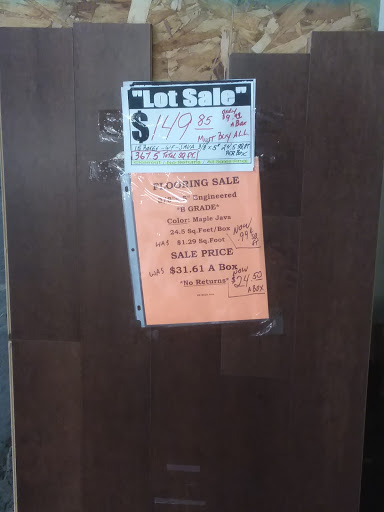 "Lot Sale"
$149.85 only $9.99 A Box
MUST BUY ALL
15 BOXES JAVA 3/8 x 5" 24.5 SQ FT
367.5 TOTAL SQ FT PER BOX
FLOORING SALE
Engineered
"B GRADE"
Color: Maple Java
24.5 Sq.Feet/Box NOW
WAS $1.29 Sq.Foot .99
SALE PRICE
WAS $31.61 A Box NOW
"No Returns" $24.50
A BOX